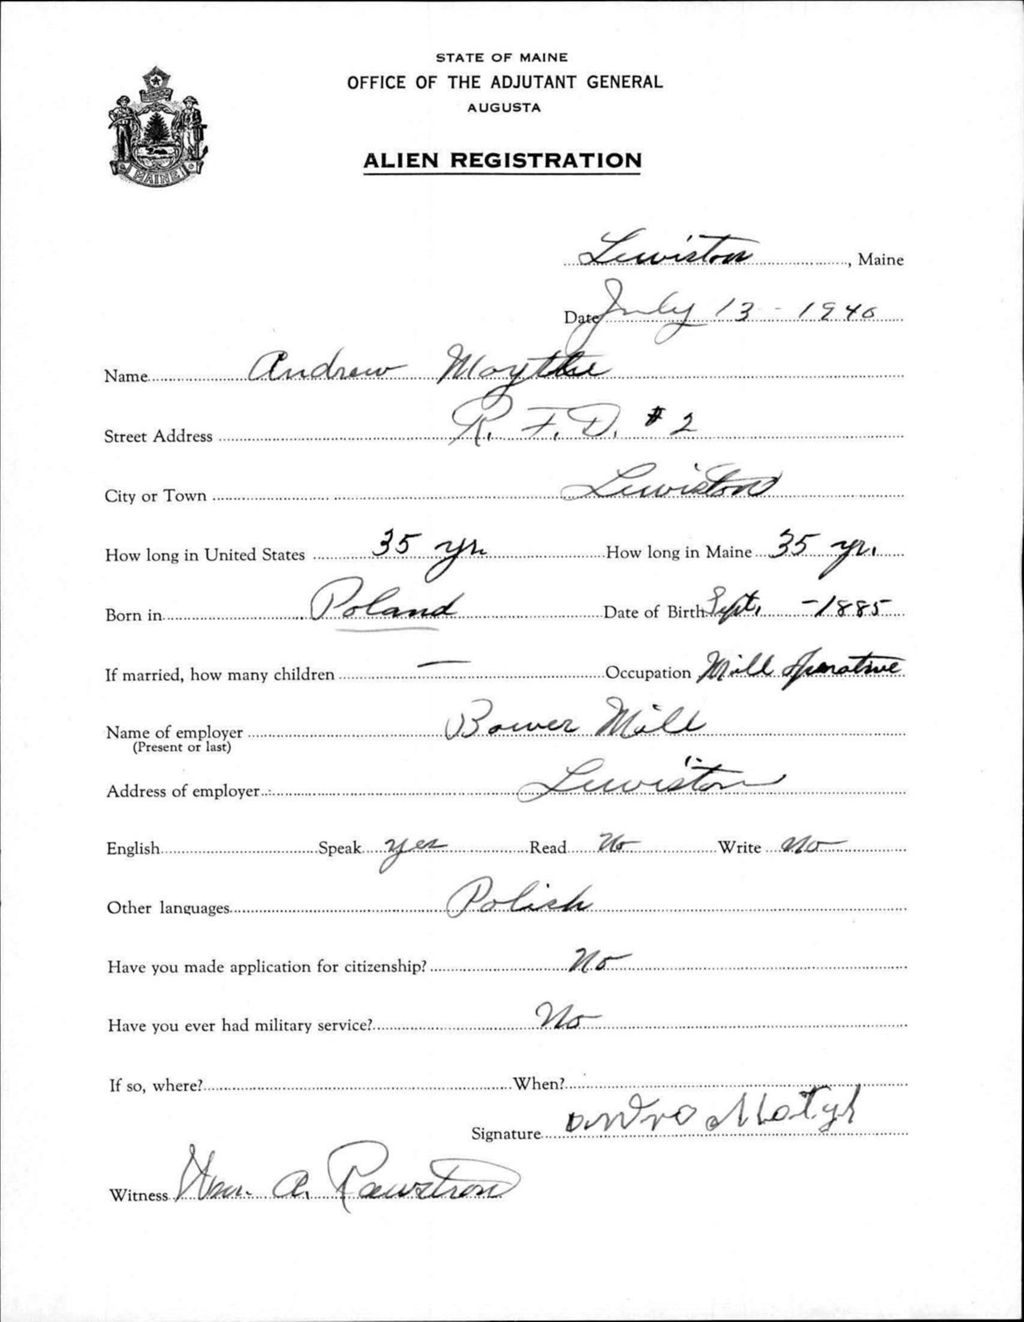 STATE OF MAINE
OFFICE OF THE ADJUTANT GENERAL
AUGUSTA
MAINE
ALIEN REGISTRATION
Lewiston, Maine
Date July 13 - 1940
Name Andrew
Street Address R. F. D. #2
City or Town Lewiston
How long in United States 35 yr. How long in Maine 35 yr.
Born in Poland Date of Birth Sept. - 1885
If married, how many children — Occupation Mill Operative
Name of employer Bower Mill
(Present or last)
Address of employer Lewiston
English Speak yes Read No Write No
Other languages Polish
Have you made application for citizenship? No
Have you ever had military service? No
If so, where? When?
Signature
Witness Wm. A. Rawstron